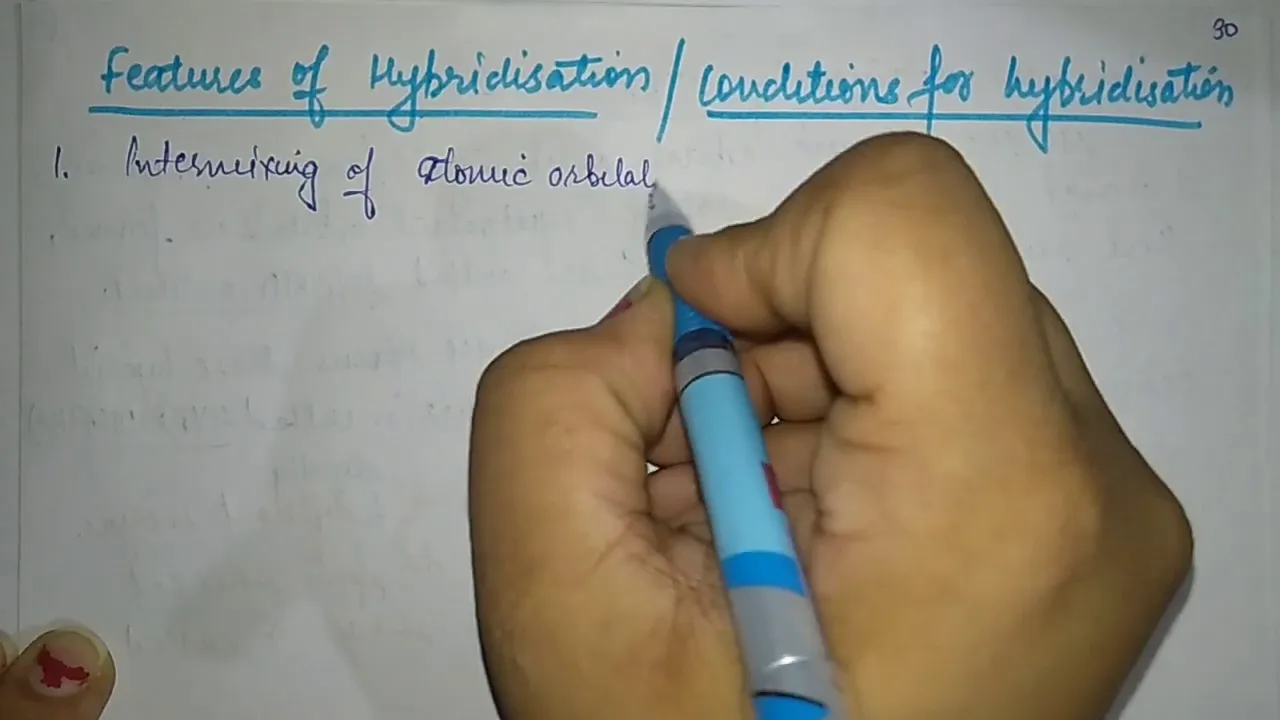 30
Features of Hybridisation / Conditions for hybridisation
1. Intermixing of atomic orbital